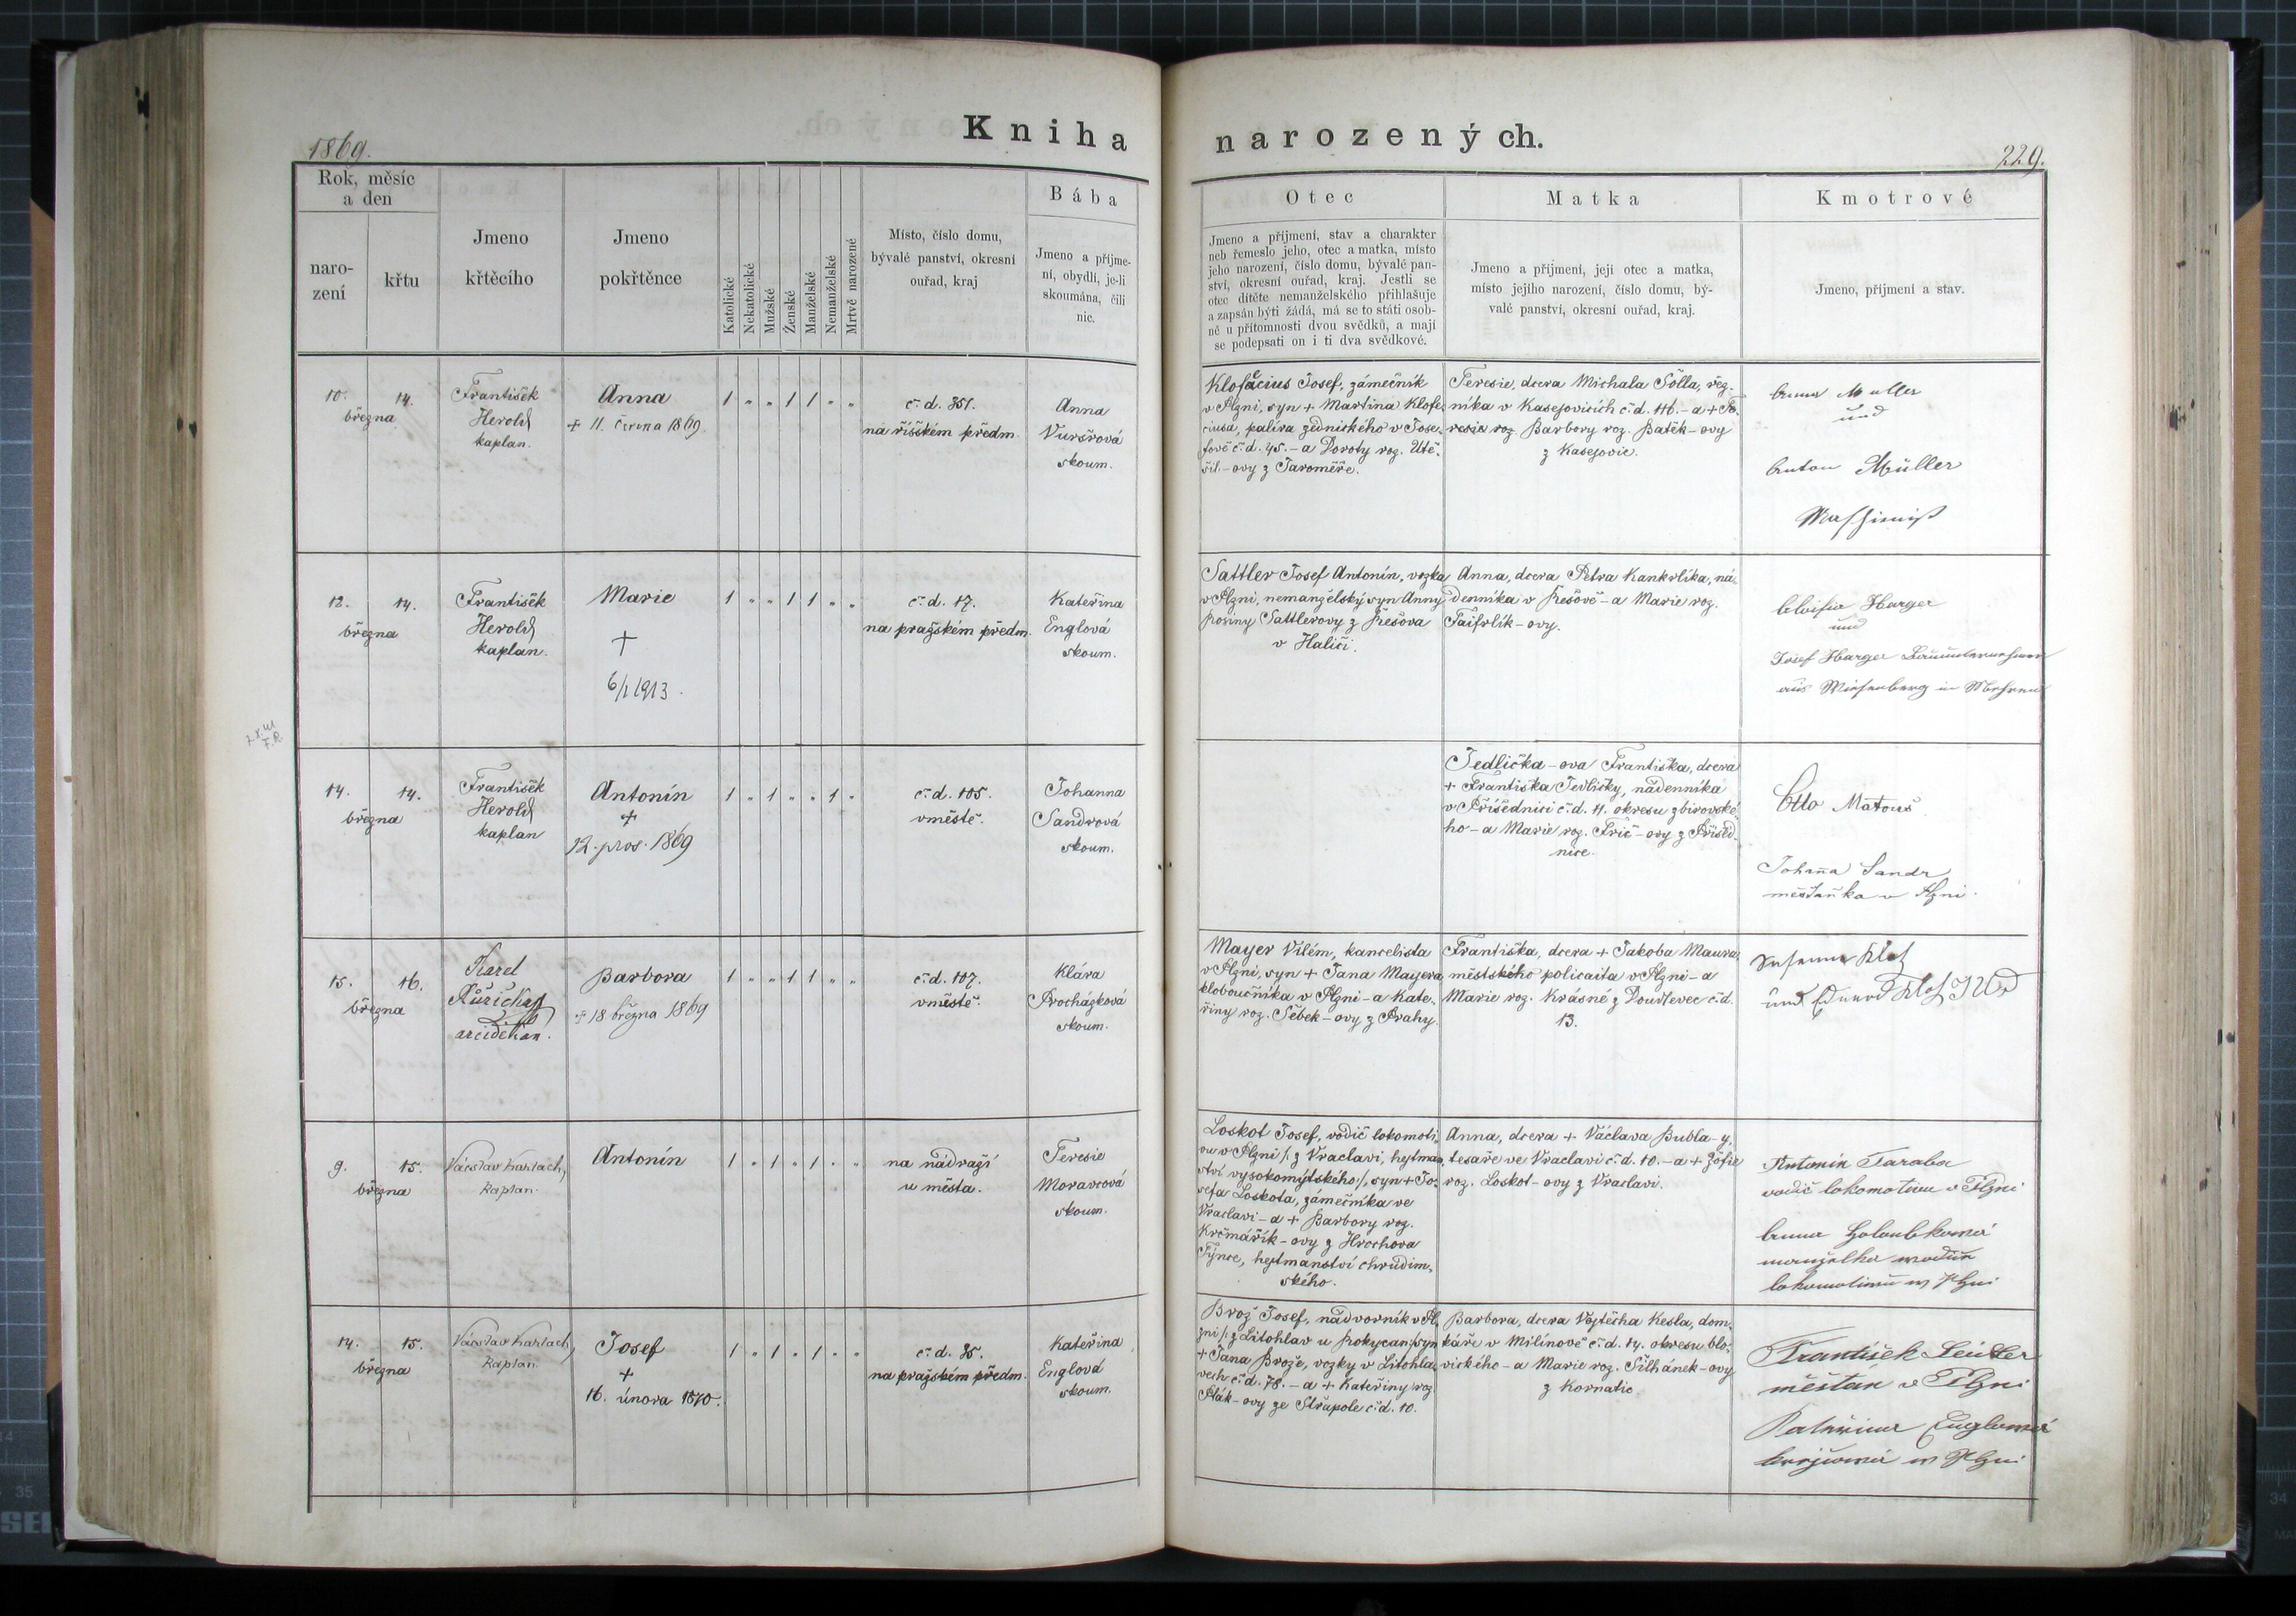 Kniha narozených.
1869.
229.
Rok, měsíc
a den
naro-
zení
křtu
Jmeno
křtěcího
Jmeno
pokřtěnce
Katolické
Nekatolické
Mužské
Ženské
Manželské
Nemanželské
Mrtvě narozené
Místo, číslo domu,
bývalé panství, okresní
ouřad, kraj
Bába
Jmeno a příjme-
ní, obydlí, je-li
skoumána, čili
nic.
Otec
Jmeno a příjmení, stav a charakter
neb řemeslo jeho, otec a matka, místo
jeho narození, číslo domu, bývalé pan-
ství, okresní ouřad, kraj. Jestli se
otec dítěte nemanželského přihlašuje
a zapsán býti žádá, má se to státi osob-
ně u přítomnosti dvou svědků, a mají
se podepsati on i ti dva svědkové.
Matka
Jmeno a příjmení, její otec a matka,
místo jejího narození, číslo domu, bý-
valé panství, okresní ouřad, kraj.
Kmotrové
Jmeno, příjmení a stav.
10. 14.
března
František
Herold
kaplan.
Anna
+ 11. června 1869.
1 „ „ 1 1 „ „
č. d. 351.
na říšském předm.
Anna
Vuršrová
skoum.
Klofácius Josef, zámečník
v Plzni, syn + Martina Klofe-
ciusa, palíra zednického v Jose-
fově č. d. 45. - a Doroty roz. Utě-
šil-ovy z Jaroměře.
Teresie, dcera Michala Sölla, řez-
níka v Kasejovicích č. d. 116. - a + Te-
resie roz. Barbory roz. Batěk-ovy
z Kasejovic.
Anna Müller
und
Anton Müller
Maschinist
12. 14.
března
František
Herold
kaplan.
Marie
+
6/1 1913.
1 „ „ 1 1 „ „
č. d. 17.
na pražském předm.
Kateřina
Englová
skoum.
Sattler Josef Antonín, vozka
v Plzni, nemanželský syn Anny
Rosiny Sattlerovy z Řešova
v Haliči.
Anna, dcera Petra Kankrlíka, ná-
denníka v Řešově - a Marie roz.
Taifrlík-ovy.
Aloisia Harger
und
Josef Harger Bauunternehmer
aus Wiesenberg in Mähren
14. 14.
března
František
Herold
kaplan
Antonín
+
12. pros. 1869
1 „ 1 „ „ 1 „
č. d. 105.
v městě.
Johanna
Sandrová
skoum.
Jedlička-ova Františka, dcera
+ Františka Jedličky, nádenníka
v Příšednici č. d. 11. okresu zbirovské-
ho - a Marie roz. Frič-ovy z Příšed-
nice.
Otto Matouš
Johanna Sandr
měšťanka v Plzni.
15. 16.
března
Karel
Růžička
arciděkan.
Barbora
+ 18 března 1869
1 „ „ 1 1 „ „
č. d. 107.
v městě.
Klára
Procházková
skoum.
Mayer Vilém, kancelista
v Plzni, syn + Jana Mayera
kloboučníka v Plzni - a Kate-
řiny roz. Šebek-ovy z Prahy.
Františka, dcera + Jakoba Maura,
městského policaita v Plzni - a
Marie roz. Krásné z Doudlevec č. d.
13.
Susanna Klotz
und Eduard Klotz JUD
9. 15.
března
Václav Karlach,
kaplan.
Antonín
1 „ 1 „ 1 „ „
na nádraží
u města.
Teresie
Moravcová
skoum.
Loskot Josef, vodič lokomoti-
vu v Plzni /: z Vraclavi, hejtman-
ství vysokomýtského :/, syn + Jo-
sefa Loskota, zámečníka ve
Vraclavi - a + Barbory roz.
Krčmářík-ovy z Hrochova
Týnce, hejtmanství chrudim-
ského.
Anna, dcera + Václava Bubla-y,
tesaře ve Vraclavi č. d. 10. - a + Žofie
roz. Loskot-ovy z Vraclavi.
Antonín Taraba
vodič lokomotivu v Plzni
Anna Holoubkowá
manželka wodiče
lokomotiwu w Plzni
14. 15.
března
Václav Karlach,
kaplan.
Josef
+
16. února 1870.
1 „ 1 „ 1 „ „
č. d. 35.
na pražském předm.
Kateřina
Englová
skoum.
Brož Josef, nádvorník v Pl-
zni /: z Litohlav u Rokycan :/, syn
+ Jana Brože, vozky v Litohla-
vech č. d. 78. - a + Kateřiny roz.
Pták-ovy ze Střapole č. d. 10.
Barbora, dcera Vojtěcha Kesla, dom-
káře v Milínově č. d. 14. okresu blo-
vického - a Marie roz. Šilhánek-ovy
z Kornatic.
František Leidler
měštan v Plzni
Kateřina Englowá
w Plzni